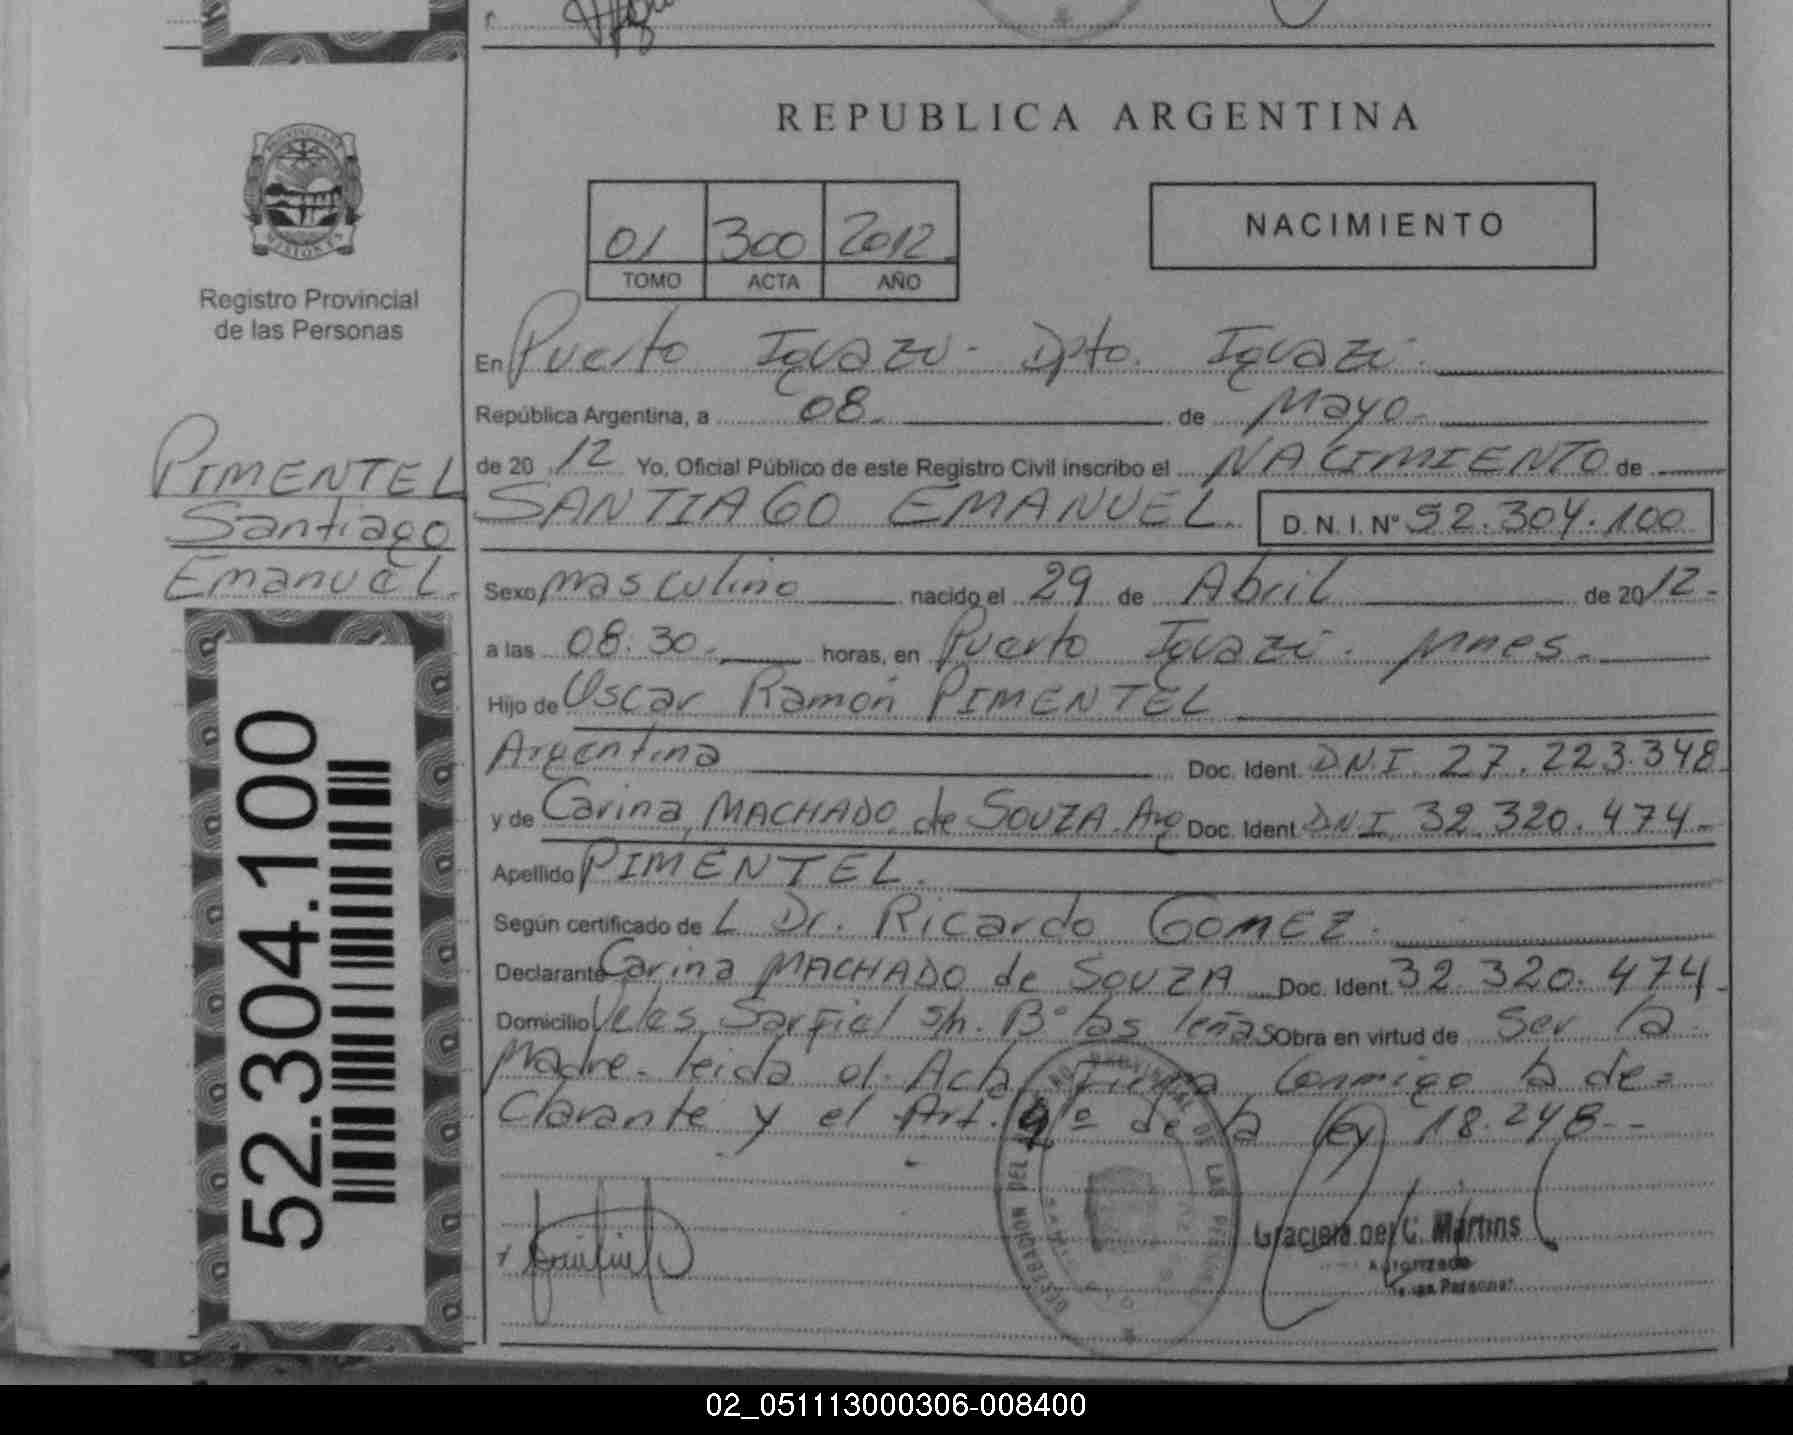 REPUBLICA ARGENTINA
PROVINCIA DE
MISIONES
Registro Provincial
de las Personas
01 300 2012
TOMO ACTA AÑO
NACIMIENTO
En Puerto Iguazú - Dpto. Iguazú.
República Argentina, a 08 de Mayo
de 2012 Yo, Oficial Público de este Registro Civil inscribo el NACIMIENTO de
SANTIAGO EMANUEL. D. N. I. N° 52.304.100
PIMENTEL
Santiago
Emanuel.
Sexo masculino nacido el 29 de Abril de 2012-
a las 08:30 horas, en Puerto Iguazú. Mnes.
Hijo de Oscar Ramón PIMENTEL
Argentina Doc. Ident. D.N.I. 27.223.348
y de Carina MACHADO de SOUZA. Arg Doc. Ident. DNI 32.320.474-
Apellido PIMENTEL.
Según certificado de L Dr. Ricardo GOMEZ.
Declarante Carina MACHADO de SOUZA Doc. Ident. 32.320.474
Domicilio Veles Sarfiel s/n. B° las leñas Obra en virtud de Ser la
Madre - leida el Acta Firma Conmigo la de=
Clarante y el Art. de la ley 18.248--
52.304.100
Graciela del C. Martins
Autorizado
02_051113000306-008400